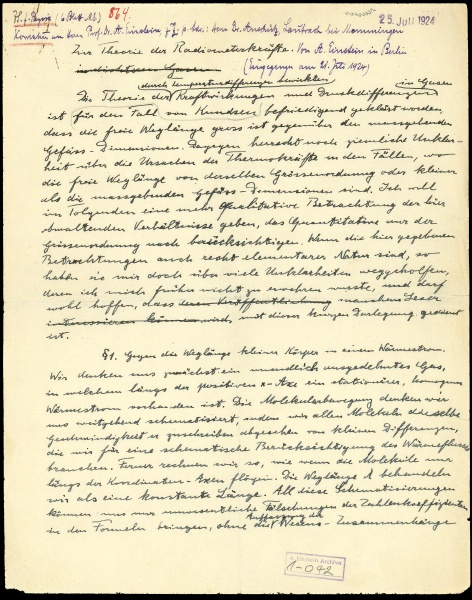 Z. f. Physik (4 Blatt Ms.) 564
25. Juli 1924
Korrektur an Herrn Prof. Dr. A. Einstein z. Z. p. Adr.: Herrn Dr. Anschütz, Lautrach bei Memmingen
Zur Theorie der Radiometerkräfte. Von A. Einstein in Berlin
in dichteren Gasen
(Eingegangen am 21. Juli 1924)
durch Temperaturdifferenzen bewirkten in Gasen
Die Theorie der Kraftwirkungen und Druckdifferenzen
ist für den Fall von Knudsen befriedigend geklärt worden,
dass die freie Weglänge gross ist gegenüber den massgebenden
Gefäss-Dimensionen. Dagegen herrscht noch ziemliche Unklar-
heit über die Ursachen der Thermokräfte in den Fällen, wo
die freie Weglänge von derselben Grössenordnung oder kleiner
als die massgebenden Gefäss-Dimensionen sind. Ich will
im Folgenden eine mehr qualitative Betrachtung der hier
obwaltenden Verhältnisse geben, das Quantitative nur der
Grössenordnung nach berücksichtigen. Wenn die hier gegebenen
Betrachtungen auch recht elementarer Natur sind, so
haben sie mir doch über viele Unklarheiten weggeholfen,
deren ich mich früher nicht zu erwehren wusste, und darf
wohl hoffen, dass deren Veröffentlichung manchem Leser
interessieren können wird, mit dieser kurzen Darlegung gedient
ist.
§1. Gegen die Weglänge kleiner Körper in einem Wärmestrom.
Wir denken uns zunächst ein unendlich ausgedehntes Gas,
in welchem längs der positiven x-Axe ein stationärer, homogener
Wärmestrom vorhanden ist. Die Molekularbewegung denken wir
uns weitgehend schematisiert, indem wir allen Molekülen dieselbe
Geschwindigkeit u zuschreiben abgesehen von kleinen Differenzen,
die wir für eine schematische Berücksichtigung des Wärmeflusses
brauchen. Ferner rechnen wir so, wie wenn die Moleküle nur
längs der Koordinaten-Axen flögen. Die Weglänge λ behandeln
wir als eine konstante Länge. All diese Schematisierungen
können uns nur unwesentliche Fälschungen der Zahlenkoeffizienten
Auffassung
in den Formeln bringen, ohne die Wesens-Zusammenhänge
A. Einstein Archive
1-042